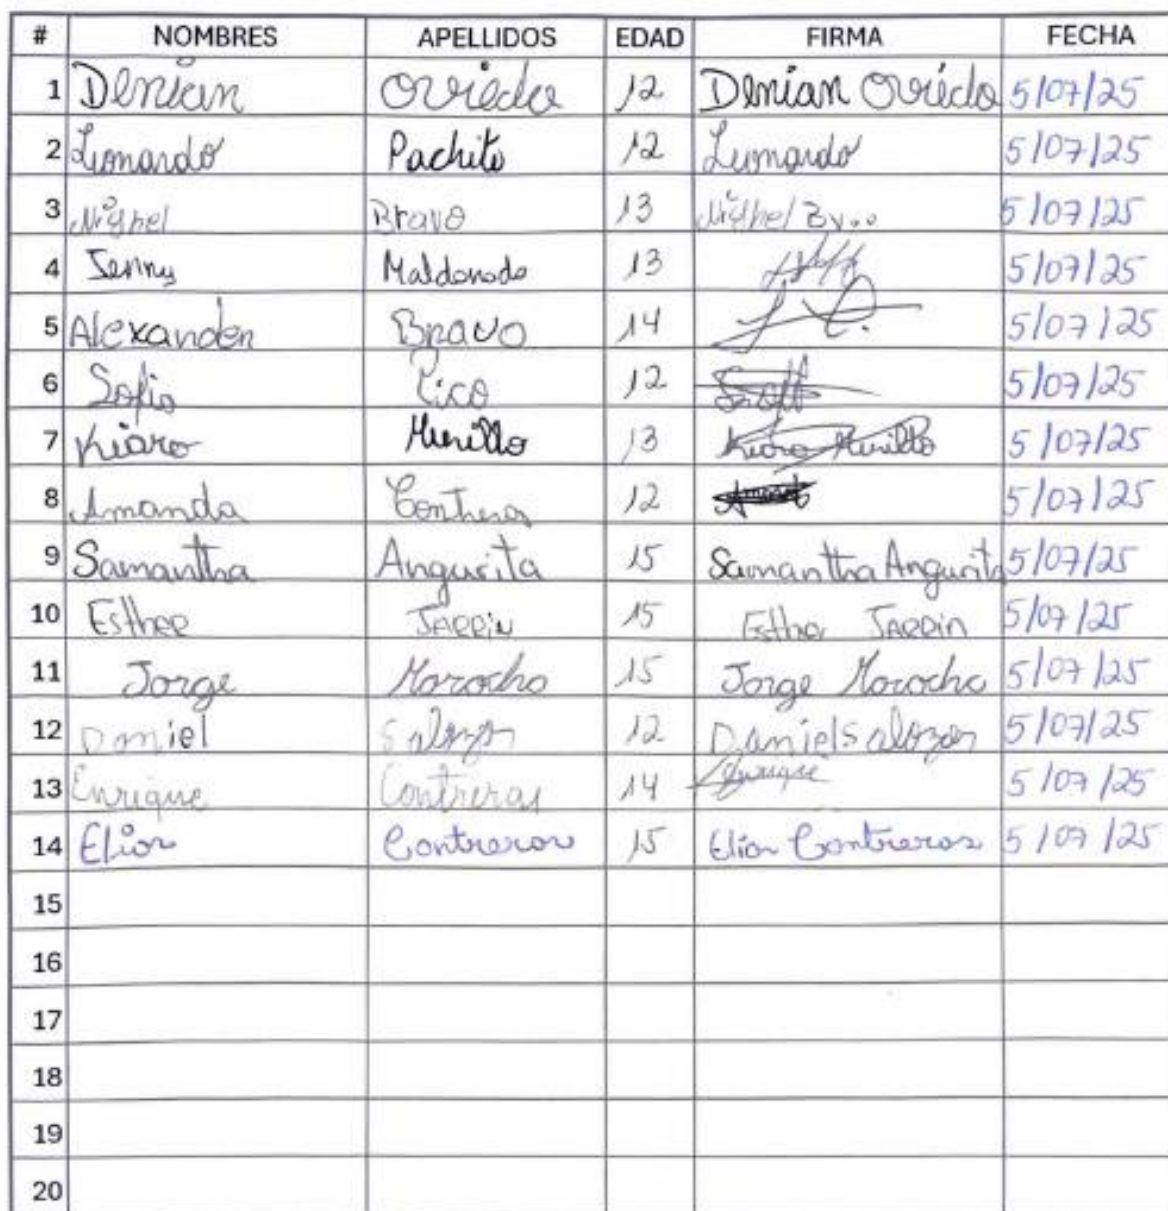 # NOMBRES APELLIDOS EDAD FIRMA FECHA
1 Denian Oviedo 12 Denian Oviedo 5/07/25
2 Leonardo Pachito 12 Leonardo 5/07/25
3 Bravo 13 5/07/25
4 Jenny Maldonado 13 5/07/25
5 Alexander Bravo 14 5/07/25
6 Sofia Pico 12 5/07/25
7 Kiara Murillo 13 Kiara Murillo 5/07/25
8 Amanda Contreras 12 5/07/25
9 Samantha Angurita 15 Samantha Angurita 5/07/25
10 Esther Jarrin 15 Esther Jarrin 5/07/25
11 Jorge Morocho 15 Jorge Morocho 5/07/25
12 Daniel 12 Daniel 5/07/25
13 Enrique Contreras 14 Enrique 5/07/25
14 Elian Contreras 15 Elian Contreras 5/07/25
15
16
17
18
19
20